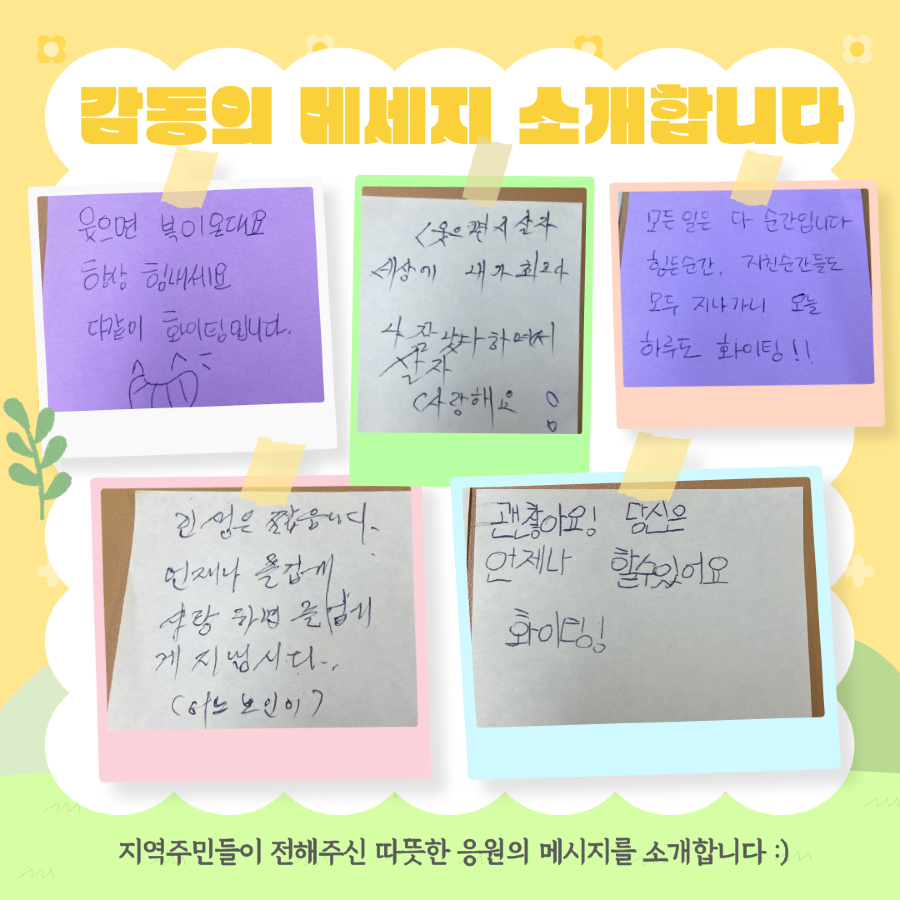 감동의 메세지 소개합니다
웃으면 복이온대요
항상 힘내세요
다같이 화이팅입니다.
웃으면서 살자
세상에 내가 최고다
살자
사랑해요
모든일은 다 순간입니다
힘든순간, 지친순간들도
모두 지나가니 오늘
하루도 화이팅!!
은 짧습니다.
언제나 즐겁게
사랑하며 즐겁게
지냅시다..
(어느 노인이)
괜찮아요! 당신은
언제나 할수있어요
화이팅!
지역주민들이 전해주신 따뜻한 응원의 메시지를 소개합니다 :)